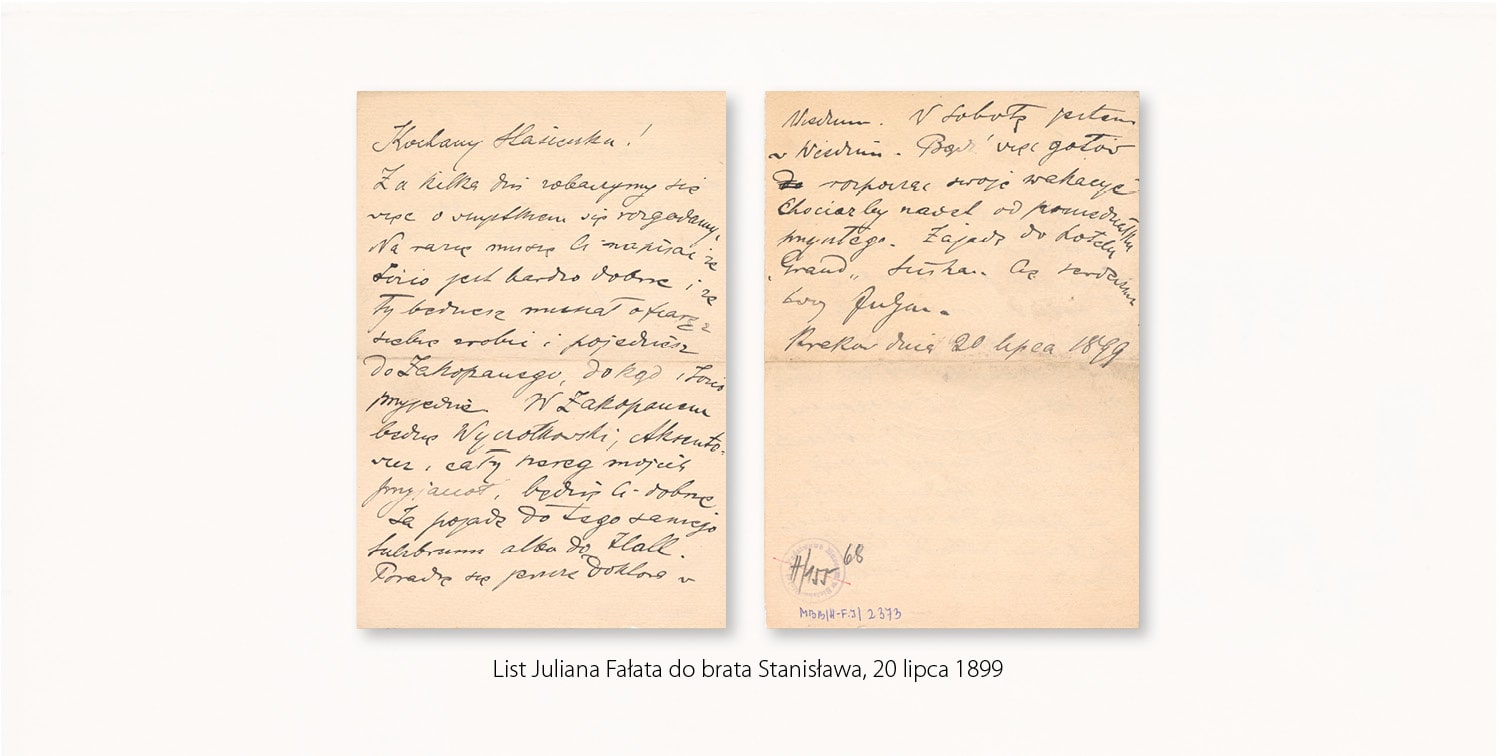 Kochany Stasieńku!
Za kilka dni zobaczymy się
więc o wszystkiem się rozgadamy.
Na razie muszę Ci napisać że
jest bardzo dobrze i że
Ty będziesz musiał ofiarę z
siebie zrobić i pojedziesz
do Zakopanego, dokąd i
przyjedzie. W Zakopanem
będzie Wyczółkowski, Aksento-
wicz i cały szereg moich
przyjaciół, będzie Ci dobrze.
Ja pojadę do tego samego
albo do Hall.
Poradzę się jeszcze Doktora w
Wiedniu. W Sobotę jestem
w Wiedniu. Bądź więc gotów
rozpocząć swoje wakacye
chociażby nawet od poniedziałku
przyszłego. Zajadę do hotelu
"Grand" Ściskam Cię serdecznie
twój Julian.
Kraków dnia 20 lipca 1899
H/155 68
MBB/H-FJ/2373
List Juliana Fałata do brata Stanisława, 20 lipca 1899